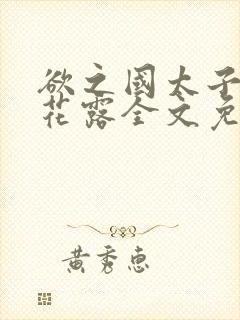 欲之國太子
花露全文免
黄秀惠